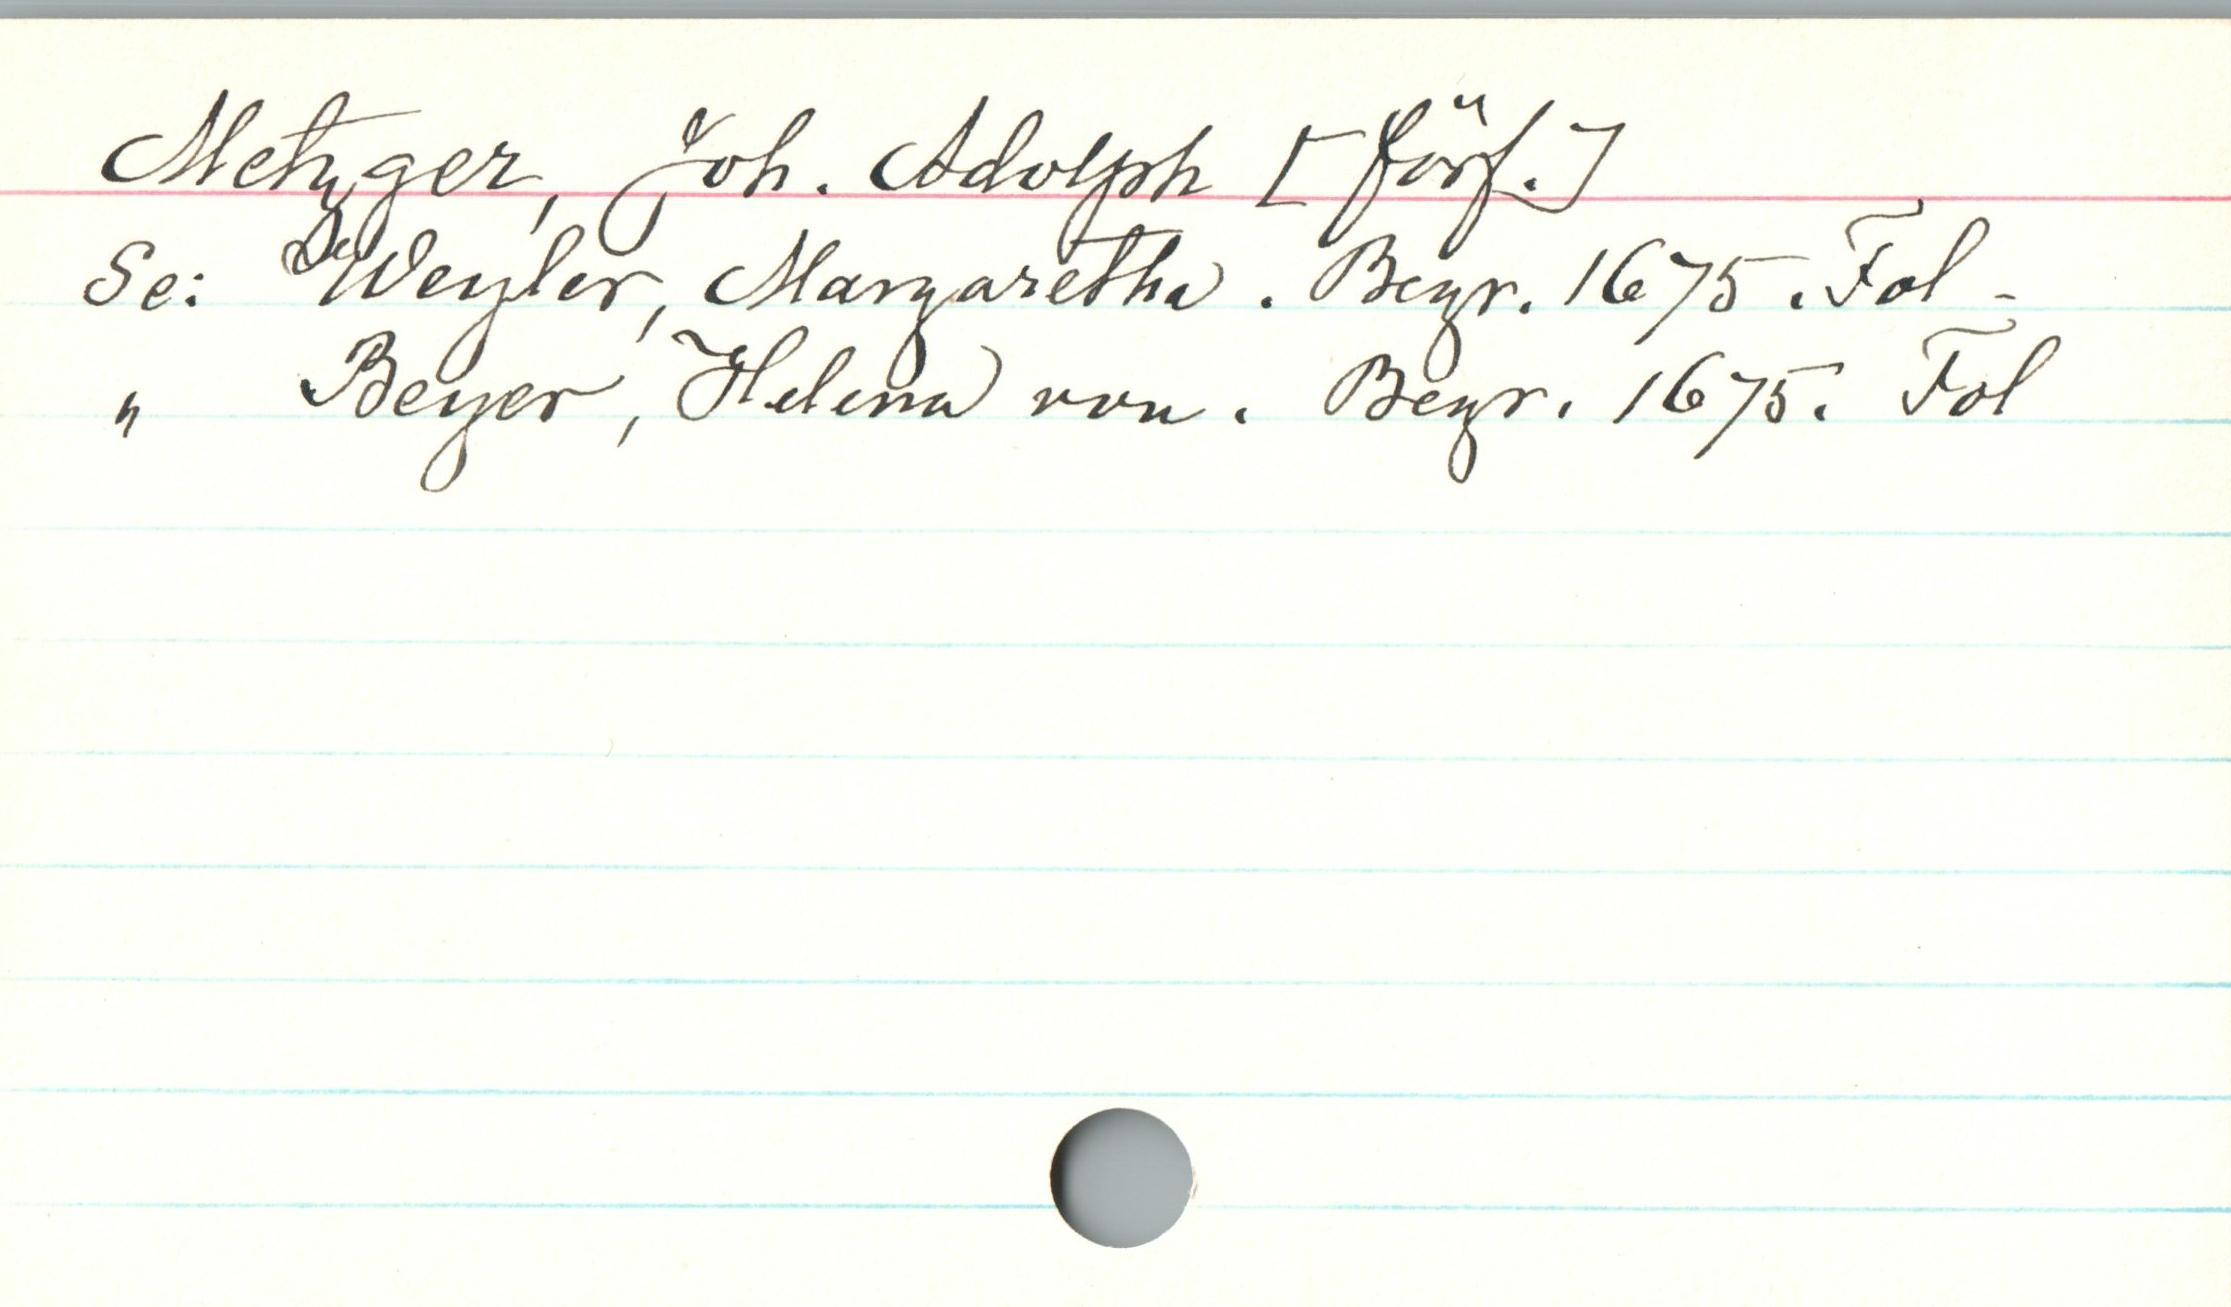 Metzger, Joh. Adolph [förf.]
Se: De Weyler, Margaretha. Begr. 1675. Fol -
" Beyer, Helena von. Begr. 1675. Fol